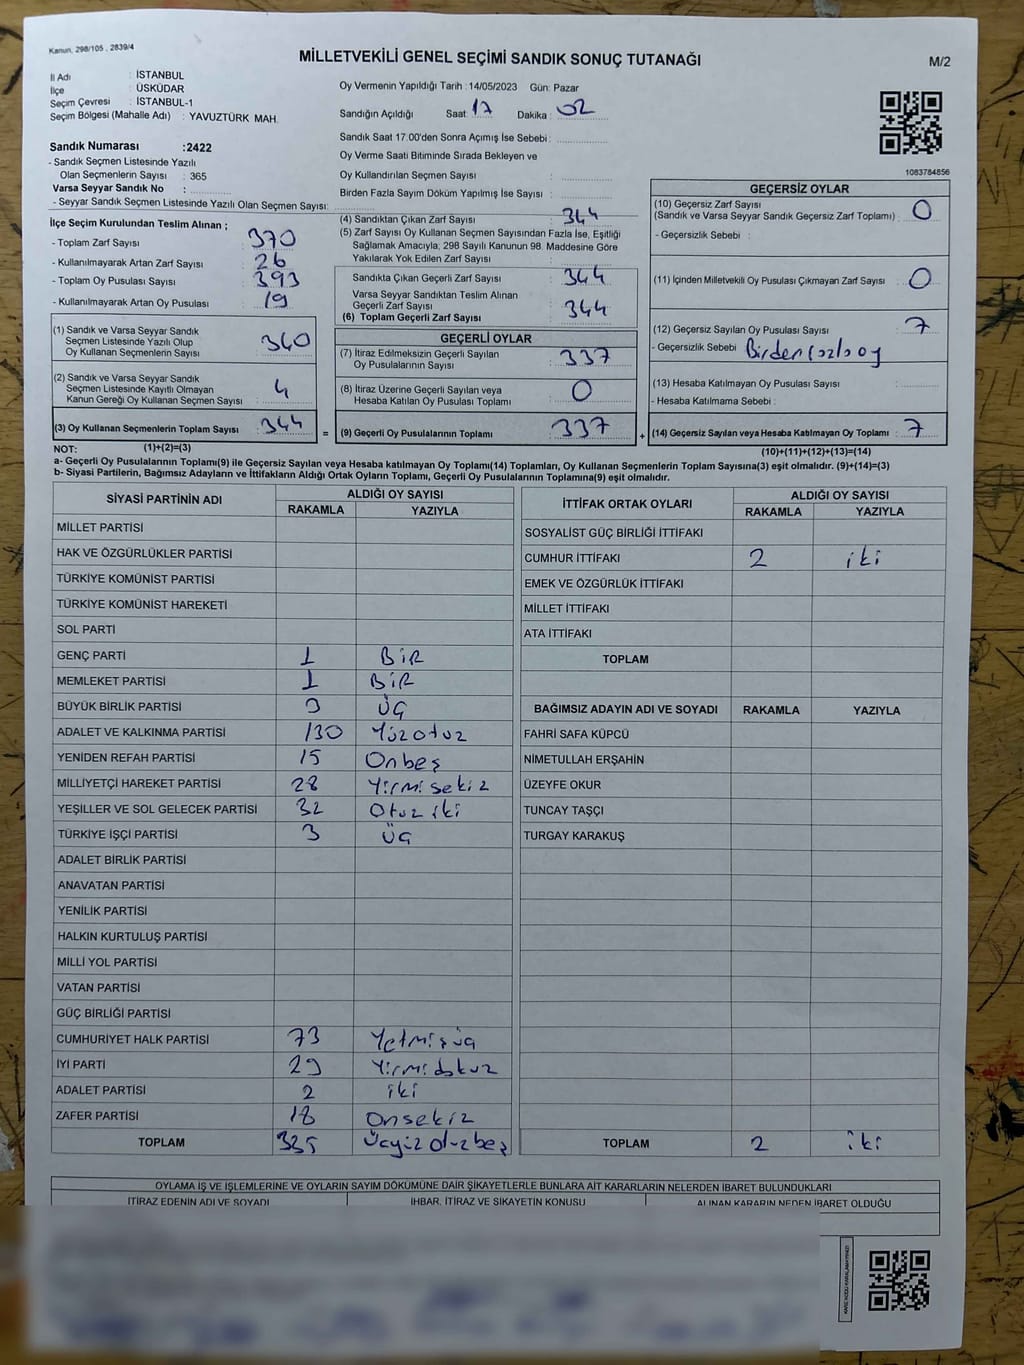 Kanun, 298/105 , 2839/4
MİLLETVEKİLİ GENEL SEÇİMİ SANDIK SONUÇ TUTANAĞI
M/2
İl Adı : İSTANBUL
İlçe : ÜSKÜDAR
Seçim Çevresi : İSTANBUL-1
Seçim Bölgesi (Mahalle Adı) : YAVUZTÜRK MAH.
Oy Vermenin Yapıldığı Tarih :14/05/2023 Gün: Pazar
Sandığın Açıldığı Saat: 17 Dakika : 02
Sandık Saat 17.00'den Sonra Açımış İse Sebebi :
Oy Verme Saati Bitiminde Sırada Bekleyen ve
Oy Kullandırılan Seçmen Sayısı :
Birden Fazla Sayım Döküm Yapılmış İse Sayısı :
1083784856
Sandık Numarası :2422
- Sandık Seçmen Listesinde Yazılı
Olan Seçmenlerin Sayısı : 365
Varsa Seyyar Sandık No :
- Seyyar Sandık Seçmen Listesinde Yazılı Olan Seçmen Sayısı:
İlçe Seçim Kurulundan Teslim Alınan ;
- Toplam Zarf Sayısı : 370
- Kullanılmayarak Artan Zarf Sayısı : 26
- Toplam Oy Pusulası Sayısı : 393
- Kullanılmayarak Artan Oy Pusulası : 19
(1) Sandık ve Varsa Seyyar Sandık
Seçmen Listesinde Yazılı Olup
Oy Kullanan Seçmenlerin Sayısı : 340
(2) Sandık ve Varsa Seyyar Sandık
Seçmen Listesinde Kayıtlı Olmayan
Kanun Gereği Oy Kullanan Seçmen Sayısı : 4
(3) Oy Kullanan Seçmenlerin Toplam Sayısı : 344
(4) Sandıktan Çıkan Zarf Sayısı : 344
(5) Zarf Sayısı Oy Kullanan Seçmen Sayısından Fazla İse, Eşitliği
Sağlamak Amacıyla, 298 Sayılı Kanunun 98. Maddesine Göre
Yakılarak Yok Edilen Zarf Sayısı :
Sandıkta Çıkan Geçerli Zarf Sayısı : 344
Varsa Seyyar Sandıktan Teslim Alınan
Geçerli Zarf Sayısı :
(6) Toplam Geçerli Zarf Sayısı : 344
GEÇERLİ OYLAR
(7) İtiraz Edilmeksizin Geçerli Sayılan
Oy Pusulalarının Sayısı : 337
(8) İtiraz Üzerine Geçerli Sayılan veya
Hesaba Katılan Oy Pusulası Toplamı : 0
= (9) Geçerli Oy Pusulalarının Toplamı : 337
GEÇERSİZ OYLAR
(10) Geçersiz Zarf Sayısı
(Sandık ve Varsa Seyyar Sandık Geçersiz Zarf Toplamı) : 0
- Geçersizlik Sebebi :
(11) İçinden Milletvekili Oy Pusulası Çıkmayan Zarf Sayısı : 0
(12) Geçersiz Sayılan Oy Pusulası Sayısı : 7
- Geçersizlik Sebebi :
(13) Hesaba Katılmayan Oy Pusulası Sayısı :
- Hesaba Katılmama Sebebi :
+ (14) Geçersiz Sayılan veya Hesaba Katılmayan Oy Toplamı : 7
NOT: (1)+(2)=(3)
(10)+(11)+(12)+(13)=(14)
a- Geçerli Oy Pusulalarının Toplamı(9) ile Geçersiz Sayılan veya Hesaba katılmayan Oy Toplamı(14) Toplamları, Oy Kullanan Seçmenlerin Toplam Sayısına(3) eşit olmalıdır. (9)+(14)=(3)
b- Siyasi Partilerin, Bağımsız Adayların ve İttifakların Aldığı Ortak Oyların Toplamı, Geçerli Oy Pusulalarının Toplamına(9) eşit olmalıdır.
SİYASİ PARTİNİN ADI
ALDIĞI OY SAYISI
RAKAMLA YAZIYLA
MİLLET PARTİSİ
HAK VE ÖZGÜRLÜKLER PARTİSİ
TÜRKİYE KOMÜNİST PARTİSİ
TÜRKİYE KOMÜNİST HAREKETİ
SOL PARTİ
GENÇ PARTİ 1 BİR
MEMLEKET PARTİSİ 1 BİR
BÜYÜK BİRLİK PARTİSİ 3 üç
ADALET VE KALKINMA PARTİSİ 130 Yüzotuz
YENİDEN REFAH PARTİSİ 15 Onbeş
MİLLİYETÇİ HAREKET PARTİSİ 28 Yirmisekiz
YEŞİLLER VE SOL GELECEK PARTİSİ 32 Otuziki
TÜRKİYE İŞÇİ PARTİSİ 3 üç
ADALET BİRLİK PARTİSİ
ANAVATAN PARTİSİ
YENİLİK PARTİSİ
HALKIN KURTULUŞ PARTİSİ
MİLLİ YOL PARTİSİ
VATAN PARTİSİ
GÜÇ BİRLİĞİ PARTİSİ
CUMHURİYET HALK PARTİSİ 73 Yetmişüç
İYİ PARTİ 29 Yirmidokuz
ADALET PARTİSİ 2 iki
ZAFER PARTİSİ 18 Onsekiz
TOPLAM 335 Üçyüzotuzbeş
İTTİFAK ORTAK OYLARI
ALDIĞI OY SAYISI
RAKAMLA YAZIYLA
SOSYALİST GÜÇ BİRLİĞİ İTTİFAKI
CUMHUR İTTİFAKI 2 iki
EMEK VE ÖZGÜRLÜK İTTİFAKI
MİLLET İTTİFAKI
ATA İTTİFAKI
TOPLAM
BAĞIMSIZ ADAYIN ADI VE SOYADI RAKAMLA YAZIYLA
FAHRİ SAFA KÜPCÜ
NİMETULLAH ERŞAHİN
ÜZEYFE OKUR
TUNCAY TAŞÇI
TURGAY KARAKUŞ
TOPLAM 2 iki
OYLAMA İŞ VE İŞLEMLERİNE VE OYLARIN SAYIM DÖKÜMÜNE DAİR ŞİKAYETLERLE BUNLARA AİT KARARLARIN NELERDEN İBARET BULUNDUKLARI
İTİRAZ EDENİN ADI VE SOYADI İHBAR, İTİRAZ VE ŞİKAYETİN KONUSU ALINAN KARARIN NEDEN İBARET OLDUĞU